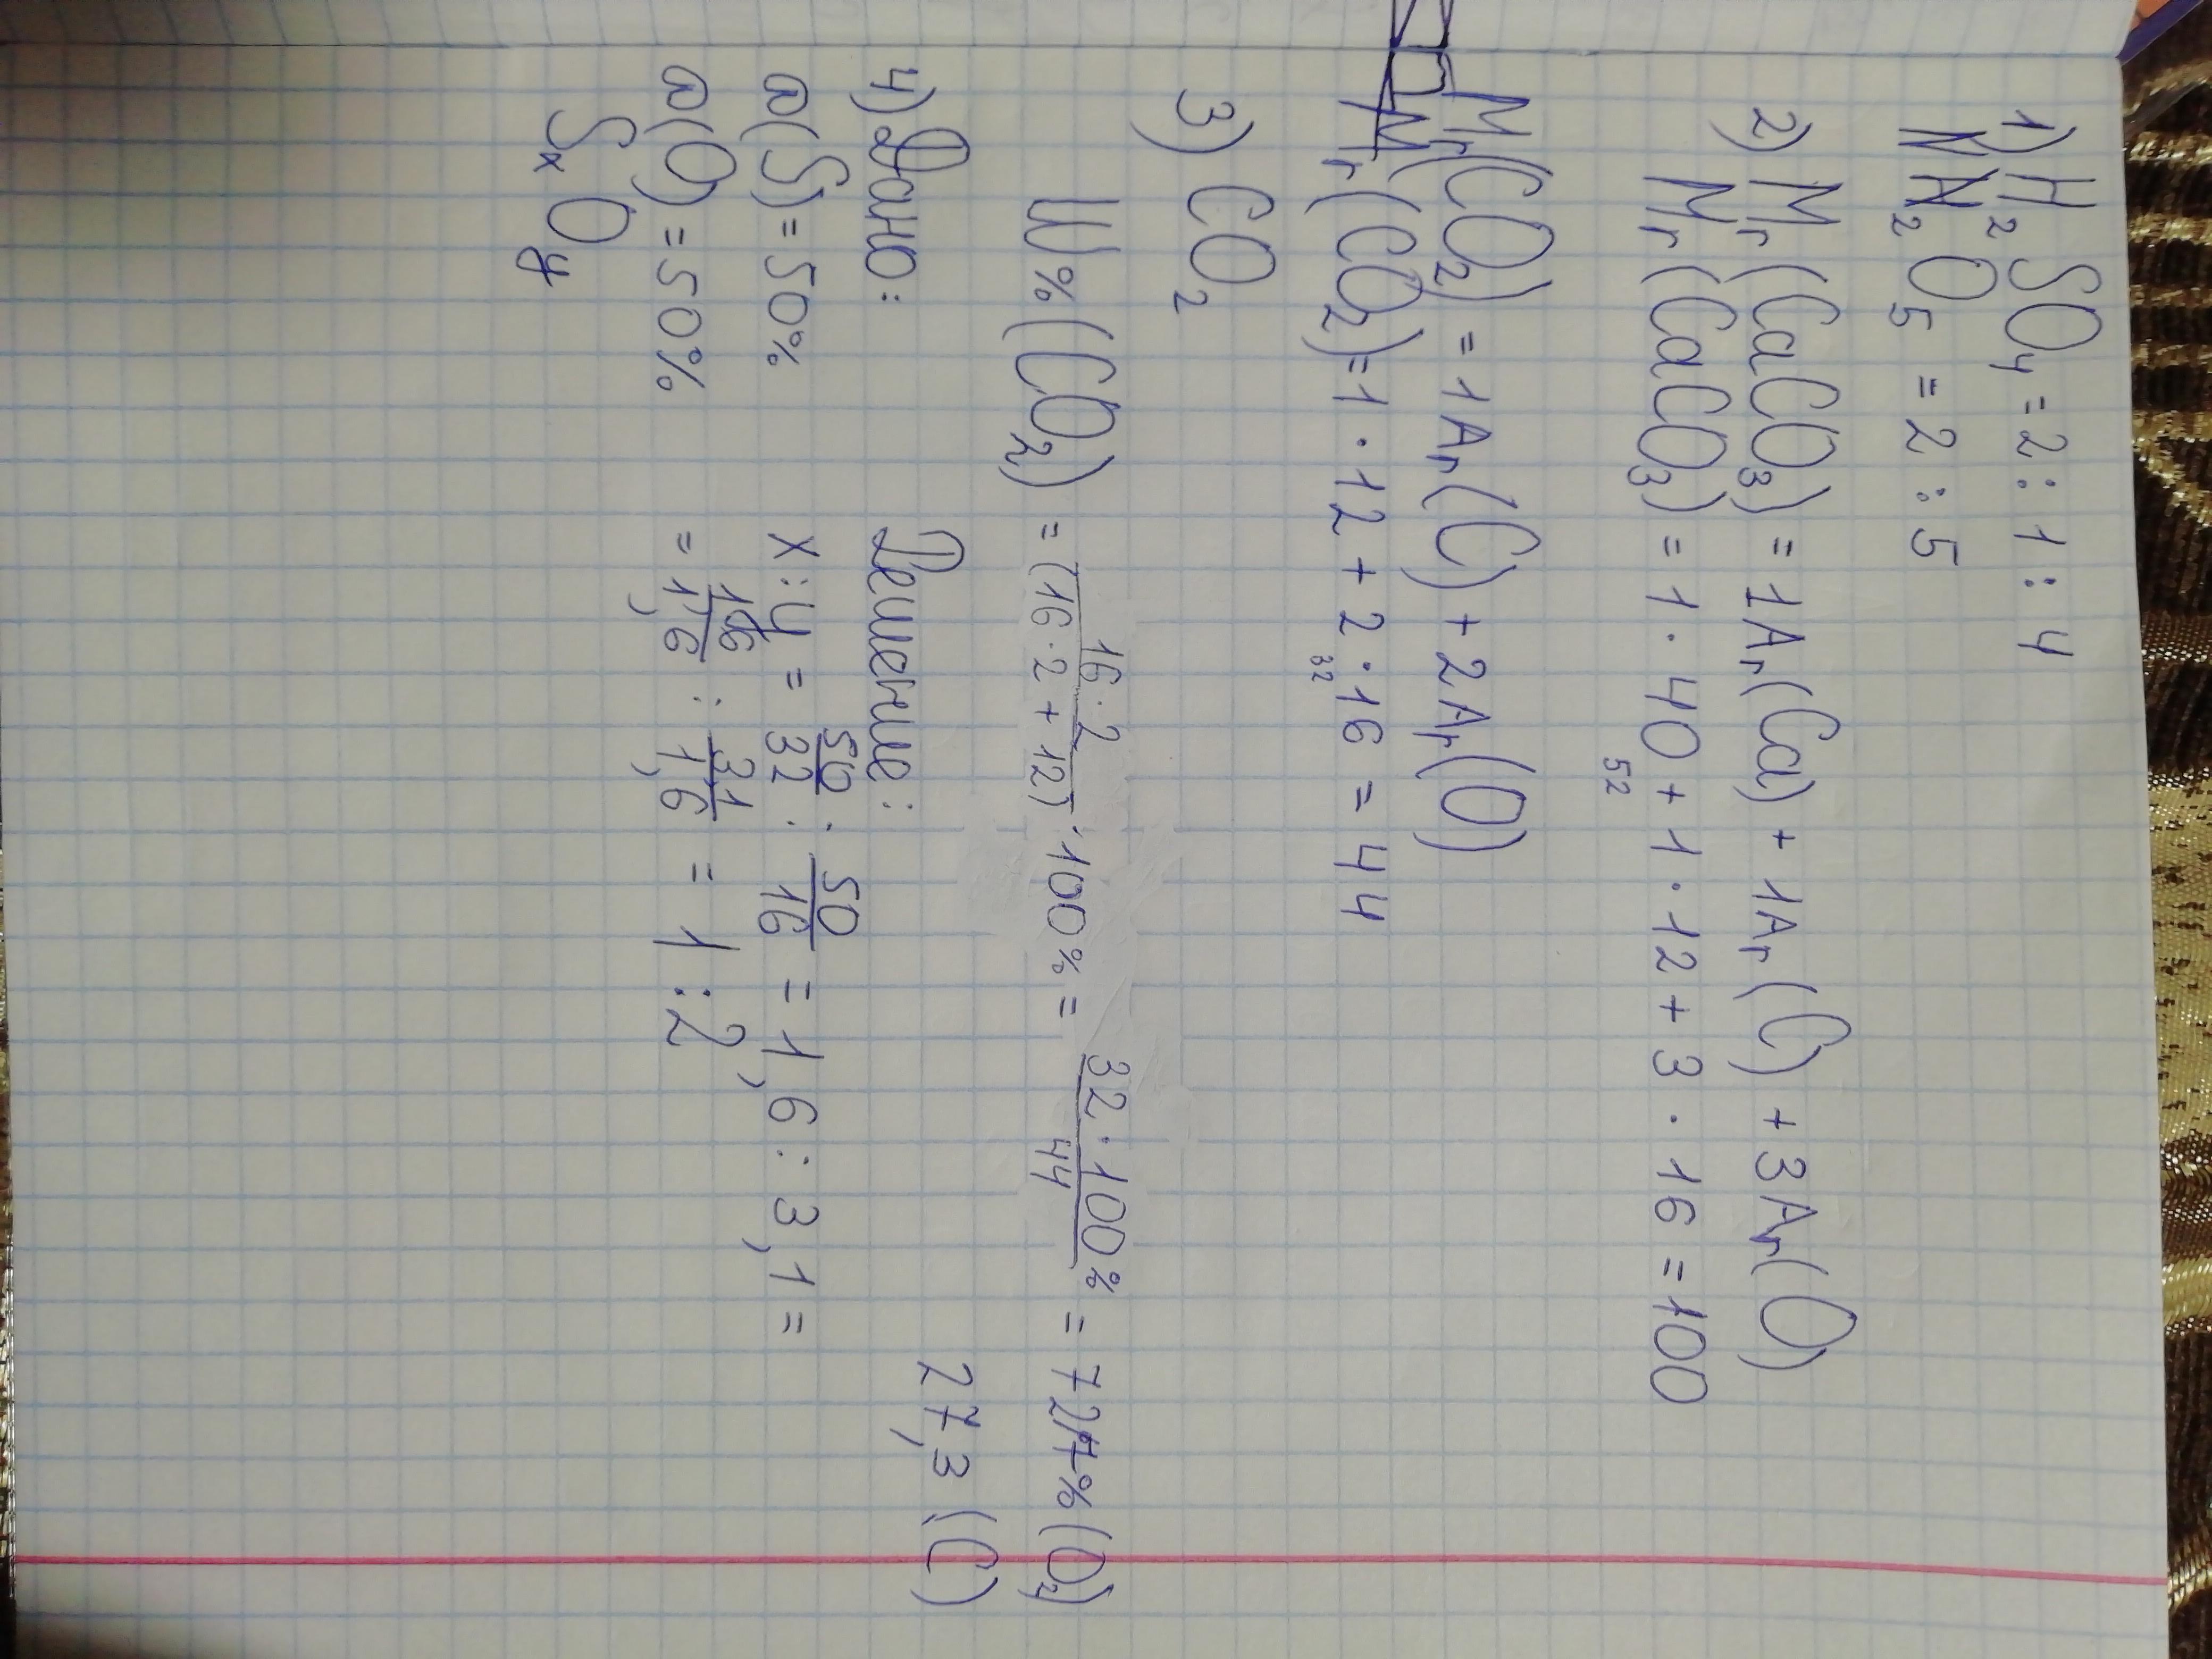 1) H₂SO₄ = 2 : 1 : 4
N₂O₅ = 2 : 5
2) Mr (CaCO₃) = 1Ar (Ca) + 1Ar (C) + 3Ar (O)
Mr (CaCO₃) = 1 · 40 + 1 · 12 + 3 · 16 = 100
52
Mr(CO₂) = 1Ar (C) + 2Ar (O)
Mr (CO₂) = 1 · 12 + 2 · 16 = 44
32
3) CO₂
W% (CO₂) = 16 · 2 / (16 · 2 + 12) · 100% = 32 · 100% / 44 = 72,7% (O₂)
27,3 (C)
4) Дано: Решение:
ω(S) = 50% x : y = 50/32 : 50/16 = 1,6 : 3,1 =
ω(O) = 50% = 1,6/1,6 : 3,1/1,6 = 1 : 2
SxOy